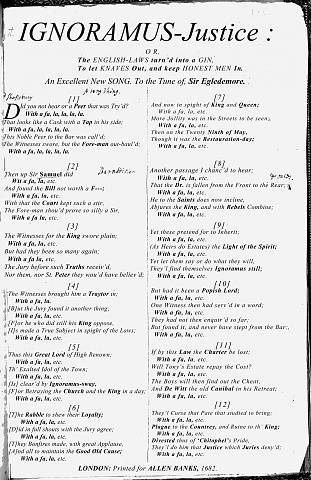 IGNORAMUS-Justice :
OR,
The ENGLISH-LAWS turn'd into a GIN,
To let KNAVES Out, and keep HONEST MEN In.
An Excellent New SONG. To the Tune of, Sir Egledemore.
[1]
Did you not hear of a Peer that was Try'd?
With a fa, la, la, la, la.
That looks like a Cask with a Tap in his side;
With a fa, la, la, la, la.
This Noble Peer to the Bar was call'd;
The Witnesses swore, but the Fore-man out-baul'd;
With a fa, la, la, la, la.
[2]
Then up Sir Samuel did
Wit a fa, la, etc.
And found the Bill not worth a F---;
With a fa, la, etc.
With that the Court kept such a stir,
The Fore-man shou'd prove so silly a Sir,
With a fa, la, etc.
[3]
The Witnesses for the King swore plain;
With a fa, la, etc.
But had they been so many again;
With a fa, la, etc.
The Jury before such Truths receiv'd,
Nor them, nor St. Peter they wou'd have believ'd;
[4]
The Witnesses brought him a Traytor in;
With a fa la.
[B]ut the Jury found it another thing;
With a fa, la, etc.
[F]or he who did still his King oppose,
[I]s made a True Subject in spight of the Laws;
With a fa, la, etc.
[5]
Thus this Great Lord of High Renown;
With a fa, la, etc.
Th' Exalted Idol of the Town;
With a fa, la, etc.
[Is] clear'd by Ignoramus-sway,
[F]or Betraying the Church and the King in a day;
With a fa, la, etc.
[6]
[T]he Rabble to shew their Loyalty;
With a fa, la, etc.
[D]id in full shouts with the Jury agree;
With a fa, la, etc.
[T]hey Bonfires made, with great Applause,
[A]nd all to maintain the Good Old Cause;
With a fa, la, etc.
[7]
And now in spight of King and Queen;
With a fa, la, etc.
More Jollity was in the Streets to be seen;
With a fa, la, etc.
Then on the Twenty Ninth of May,
Though it was the Restauration-day;
With a fa, la, etc.
[8]
Another passage I chanc'd to hear;
With a fa, la, etc.
That the Dr. is fallen from the Front to the Rear;
With a fa, la, etc.
He to the Saints does now incline,
Abjures the King, and with Rebels Combine;
With a fa, la, etc.
[9]
Yet these pretend for to Inherit;
With a fa, la, etc.
(As Heirs do Estates) the Light of the Spirit;
With a fa, la, etc.
Yet let them say or do what they will,
They'l find themselves Ignoramus still;
With a fa, la, etc.
[10]
But had it been a Popish Lord;
With a fa, la, etc.
One Witness then had serv'd in a word;
With a fa, la, etc.
They had not then engag'd so far;
But found it, and never have stept from the Bar;
With a fa, la, etc.
[11]
If by this Law the Charter be lost;
With a fa, la, etc.
Will Tony's Estate repay the Cost?
With a fa, la, etc.
The Boys will then find out the Cheat,
And De Witt the old Canibal in his Retreat;
With a fa, la, etc.
[12]
They'l Curse that Pate that studied to bring;
With a fa, la, etc.
Plague to the Countrey, and Ruine to th' King;
With a fa, la, etc.
Divested that of 'Chitophel's Pride,
They'l do him that Justice which Juries deny'd;
With a fa, la, etc.
LONDON: Printed for ALLEN BANKS, 1682.